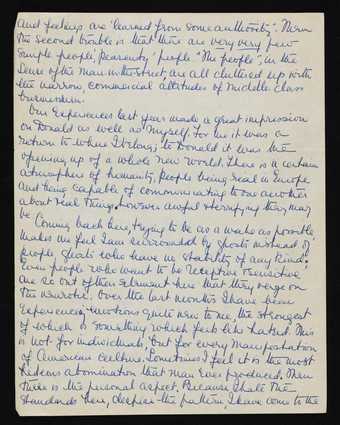 and feelings are "learned from some authority". Then
the second trouble is that there are very very few
simple people, peasanty people. "The people", in the
sense of the man in the street, are all cluttered up with
the narrow, commercial attitudes of middle class
businessmen.
Our experiences last year made a great impression
on Donald as well as myself. For me it was a
return to where I belong; to Donald it was the
opening up of a whole new world. There is a certain
atmosphere of humanity, people being real in Europe
and being capable of communicating to one another
about real things, however awful & terrifying they may
be. Coming back here, trying to be as awake as possible
makes me feel I am surrounded by ghosts instead of
people, ghosts who have no stability of any kind.
Even people who want to be receptive & sensitive
are so out of their element here that they verge on
the neurotic. Over the last months I have been
experiencing emotions quite new to me, the strongest
of which is something which feels like hatred. This
is not for individuals, but for every manifestation
of American culture. Sometimes I feel it is the most
hideous abomination that man ever produced. Then
there is the personal aspect. Because I hate the
standards here, despise the pattern, I have come to the